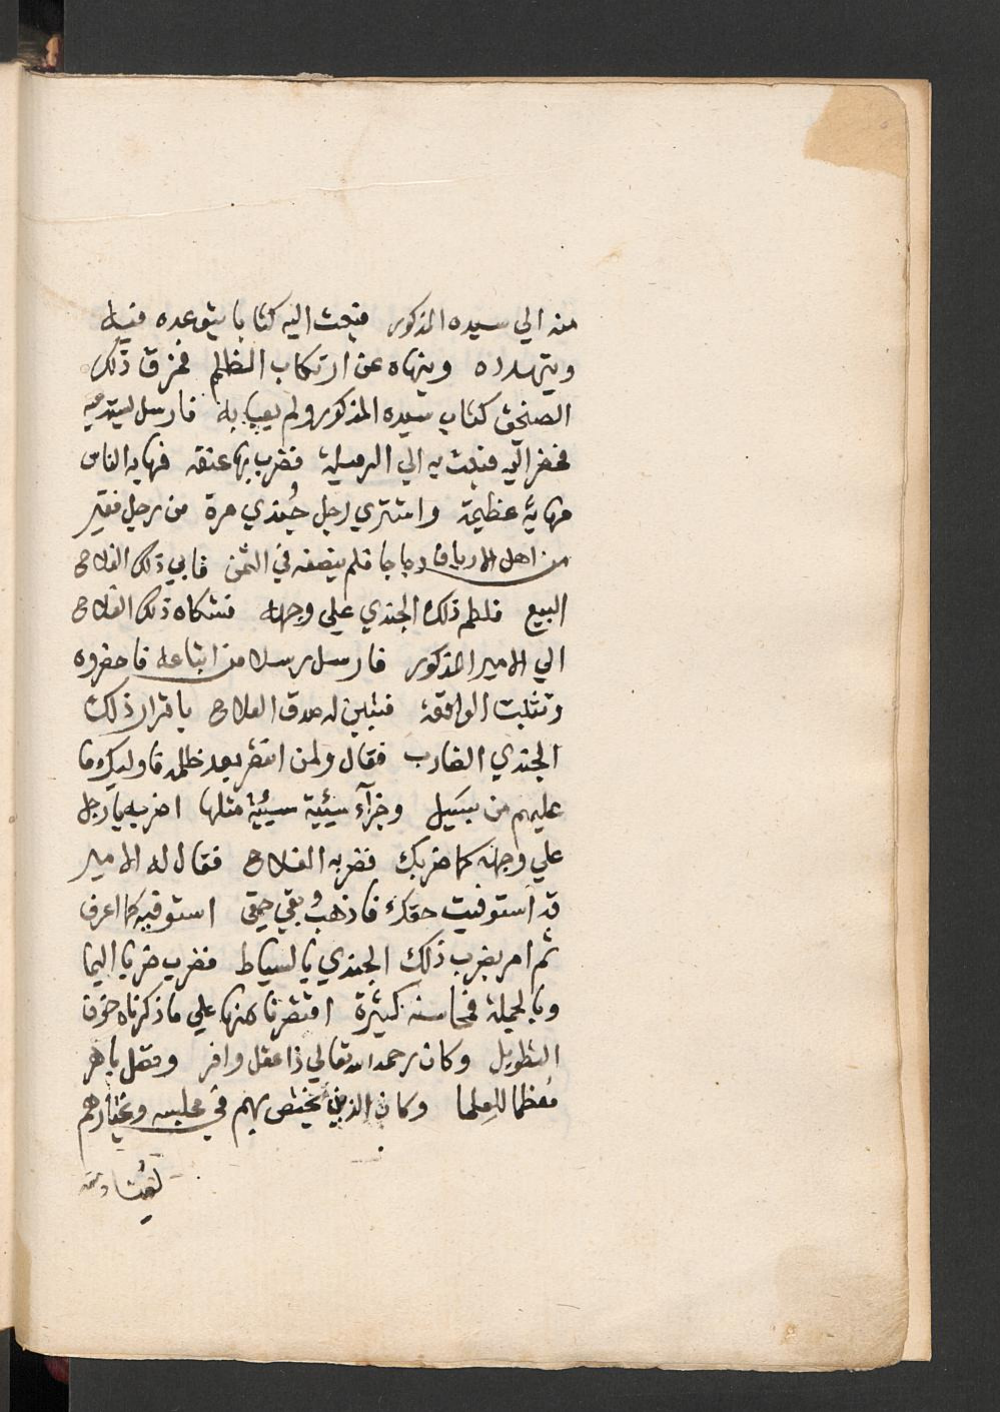 منه الي سيده المذكور فبعث اليه كتابا يتوعده فيه
ويتهدده وينهاه عن ارتكاب الظلم فمزق ذلك
الصنجق كتاب سيده المذكور ولم يعبا به فارسل ليستدعيه
فحضر اليه فبعث به الي الرميلة فضرب بها عنقه فهابه الناس
مهابة عظيمة واشتري رجل جندي مرة من رجل فقير
من اهل الارياف دجاجا فلم ينصفه في الثمن فابي ذلك الفلاح
البيع فلطم ذلك الجندي علي وجهه فشكاه ذلك الفلاح
الي الامير المذكور فارسل رسلا من اتباعه فاحضروه
وتثبت الواقعة فتبين له صدق الفلاح باقرار ذلك
الجندي الضارب فقال ولمن انتصر بعد ظلمه فاوليك ما
عليهم من سبيل وجزآء سيئية سيئية مثلها اضربه يا رجل
علي وجهه كما ضربك فضربه الفلاح فقال له الامير
قد استوفيت حقك فاذهب وبقي حقي استوفيه كما اعرف
ثم امر بضرب ذلك الجندي بالسياط فضرب ضربا اليما
وبالجملة فمحاسنه كثيرة اقتصرنا منها علي ما ذكرناه خوف
التطويل وكان رحمه الله تعالي ذا عقل وافر وفضل باهر
معظما للعلما وكان الذين يختص بهم في مجلسه ويختارهم